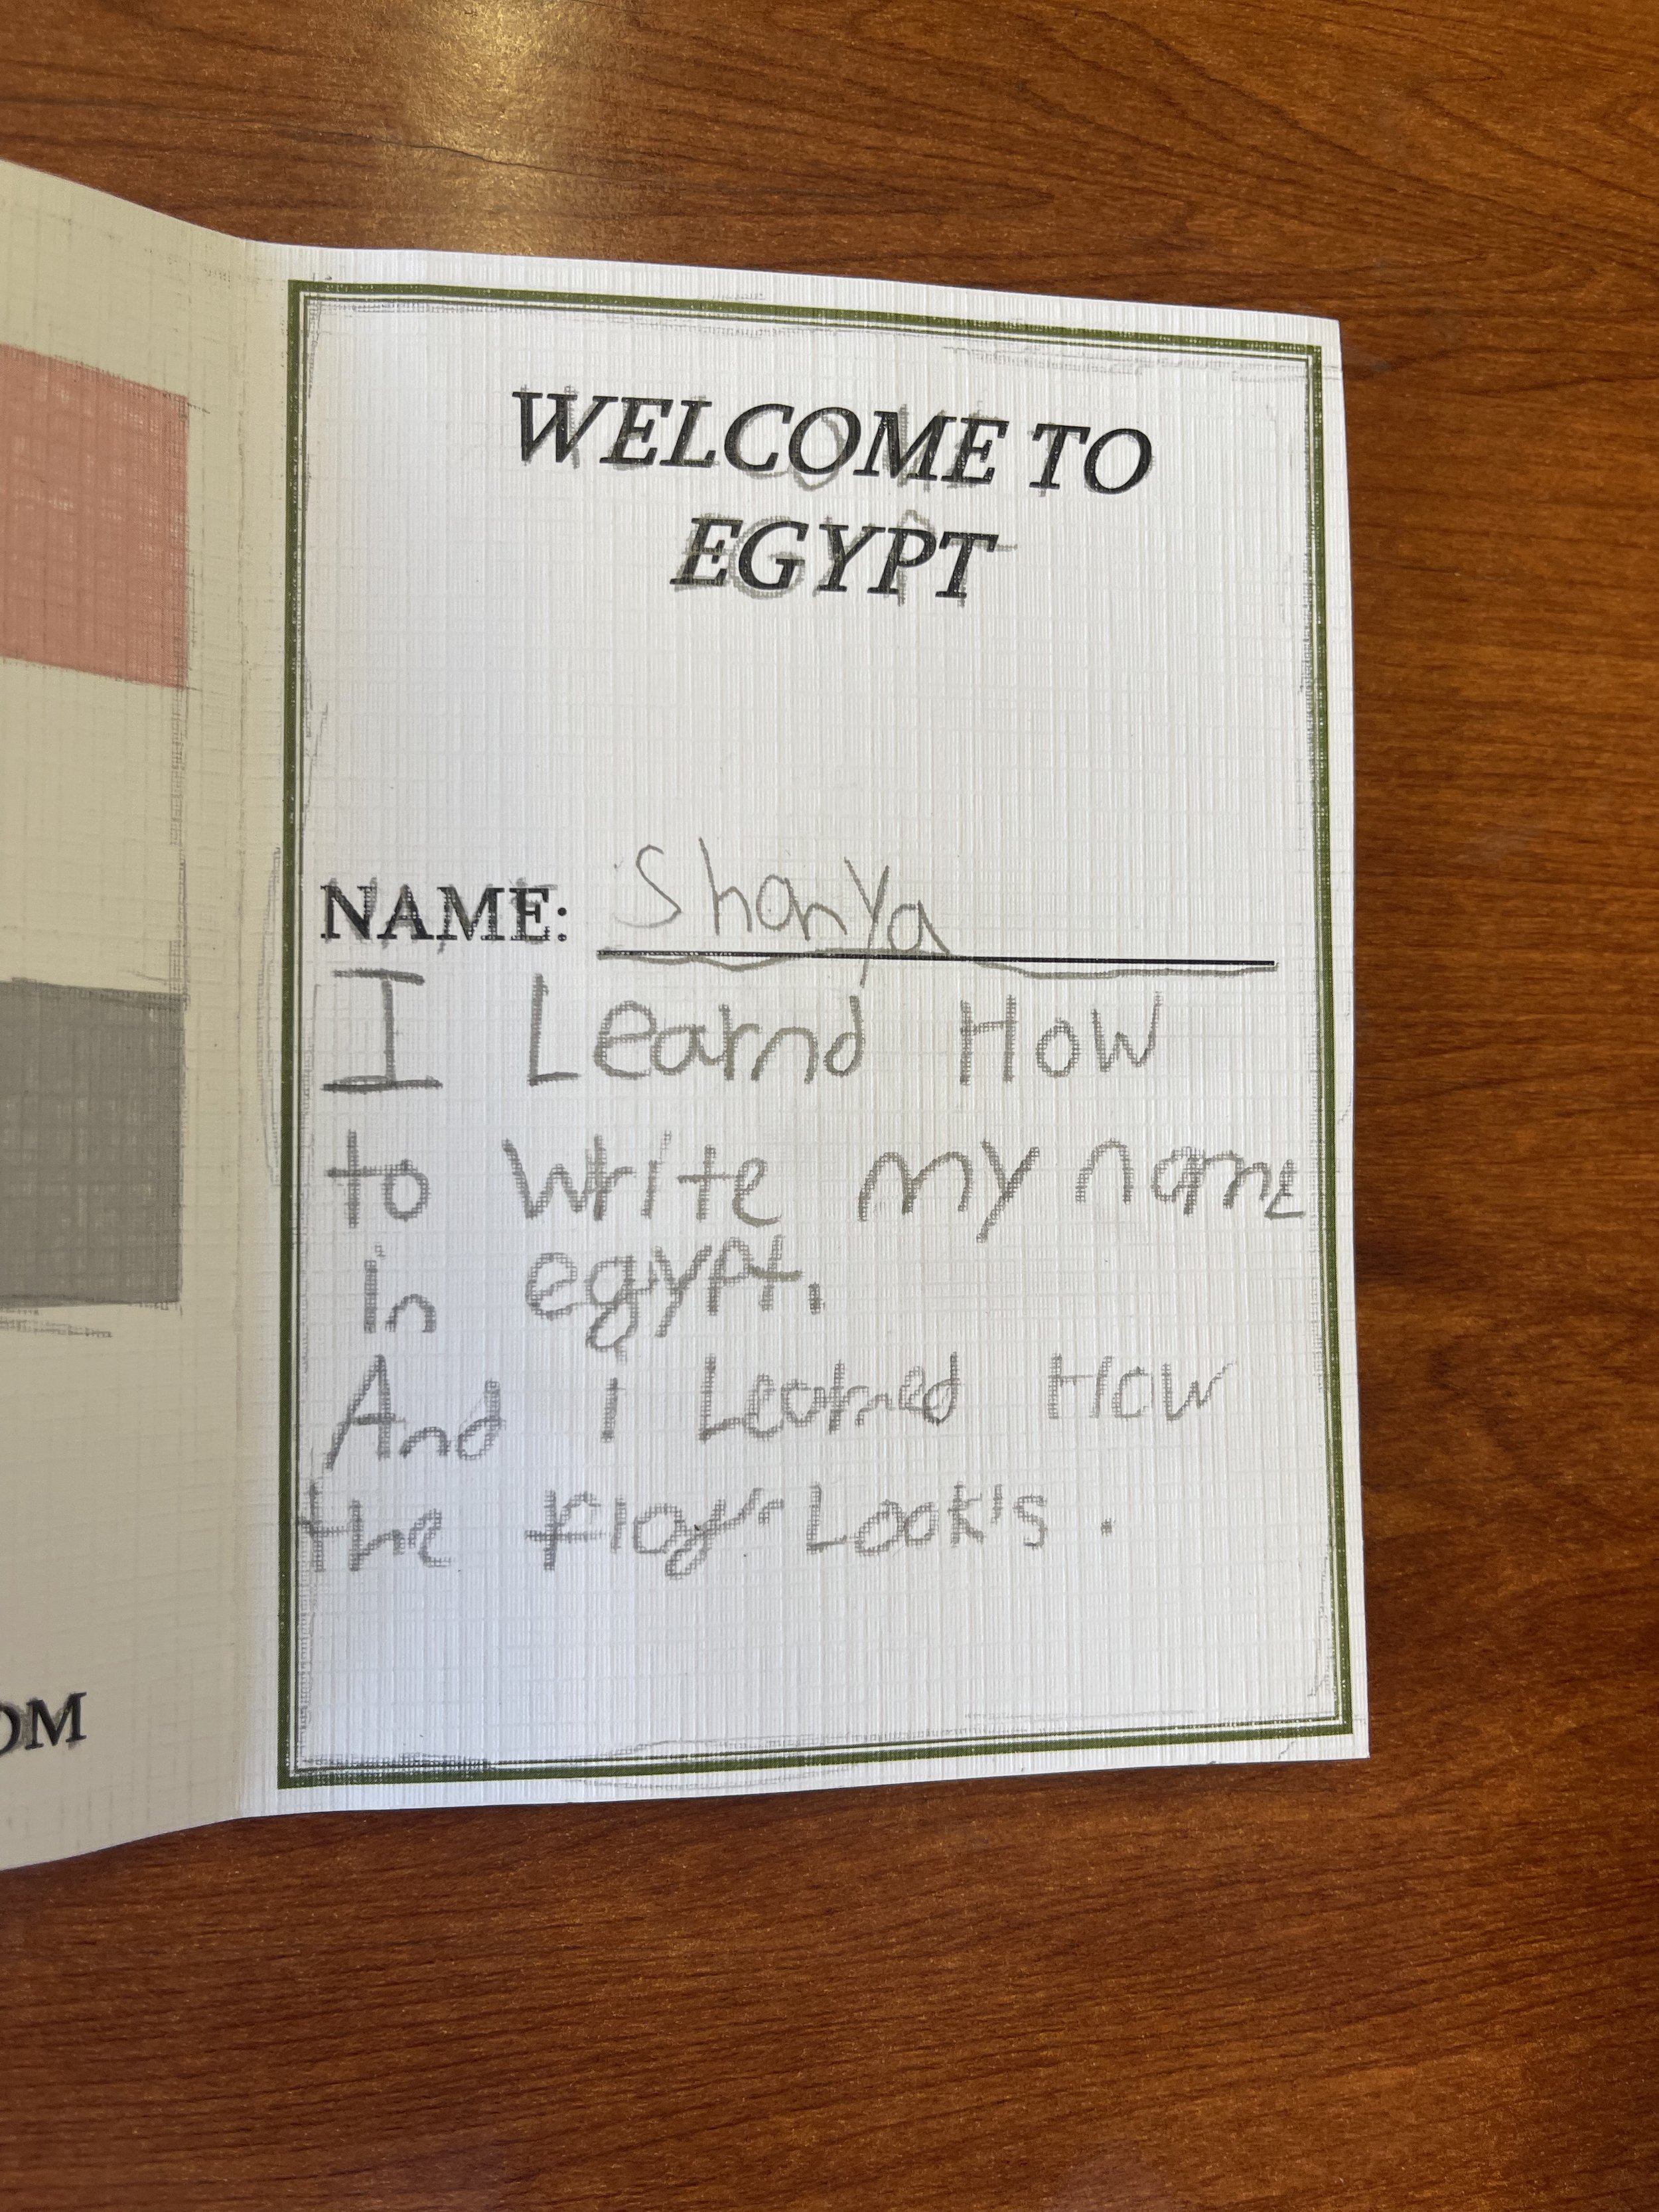 WELCOME TO
EGYPT
NAME: Shanya
I Learnd How
to write my name
in egypt.
And i Learned How
the flag Look's .
OM